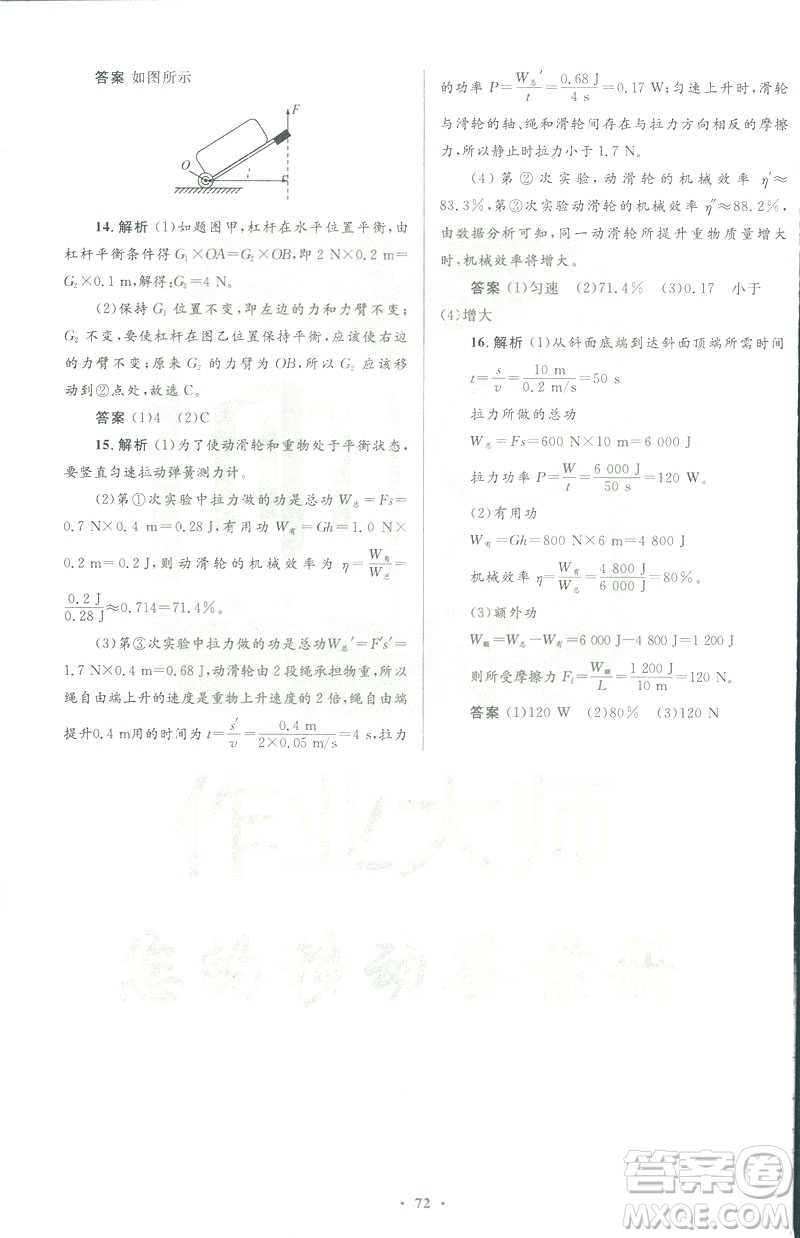 答案 如图所示
F
O
l
14.解析 (1)如题图甲,杠杆在水平位置平衡,由
杠杆平衡条件得 G₁×OA=G₂×OB,即 2 N×0.2 m=
G₂×0.1 m,解得:G₂=4 N。
(2)保持 G₁ 位置不变,即左边的力和力臂不变,
G₂ 不变,要使杠杆在图乙位置保持平衡,应该使右边
的力臂不变;原来 G₂ 的力臂为OB,所以 G₂ 应该移
动到②点处,故选 C。
答案 (1)4 (2)C
15.解析 (1)为了使动滑轮和重物处于平衡状态,
要竖直匀速拉动弹簧测力计。
(2)第①次实验中拉力做的功是总功 W总=Fs=
0.7 N×0.4 m=0.28 J,有用功 W有=Gh=1.0 N×
0.2 m=0.2 J,则动滑轮的机械效率为 η=W有/W总=
0.2 J/0.28 J≈0.714=71.4%。
(3)第③次实验中拉力做的功为:W总′=F′s′=
1.7 N×0.4 m=0.68 J,动滑轮由 2 段绳承担物重,所以
绳自由端上升的速度是重物上升速度的 2 倍,绳自由端
提升0.4 m用的时间为 t=s′/v=0.4 m/2×0.05 m/s=4 s,拉力
的功率 P=W总′/t=0.68 J/4 s=0.17 W;匀速上升时,滑轮
与滑轮的轴、绳和滑轮间存在与拉力方向相反的摩擦
力,所以静止时拉力小于 1.7 N。
(4)第②次实验,动滑轮的机械效率 η′≈
83.3%,第③次实验动滑轮的机械效率 η″≈88.2%,
由数据分析可知,同一动滑轮所提升重物质量增大
时,机械效率将增大。
答案 (1)匀速 (2)71.4% (3)0.17 小于
(4)增大
16.解析 (1)从斜面底端到达斜面顶端所需时间
t=s/v=10 m/0.2 m/s=50 s
拉力所做的总功
W总=Fs=600 N×10 m=6 000 J
拉力功率 P=W/t=6 000 J/50 s=120 W。
(2)有用功
W有=Gh=800 N×6 m=4 800 J
机械效率 η=W有/W总=4 800 J/6 000 J=80%。
(3)额外功
W额=W总-W有=6 000 J-4 800 J=1 200 J
则所受摩擦力 F₁=W额/L=1 200 J/10 m=120 N。
答案 (1)120 W (2)80% (3)120 N
作业大师
您的移动答案册
· 72 ·
答案卷
MXQE.COM